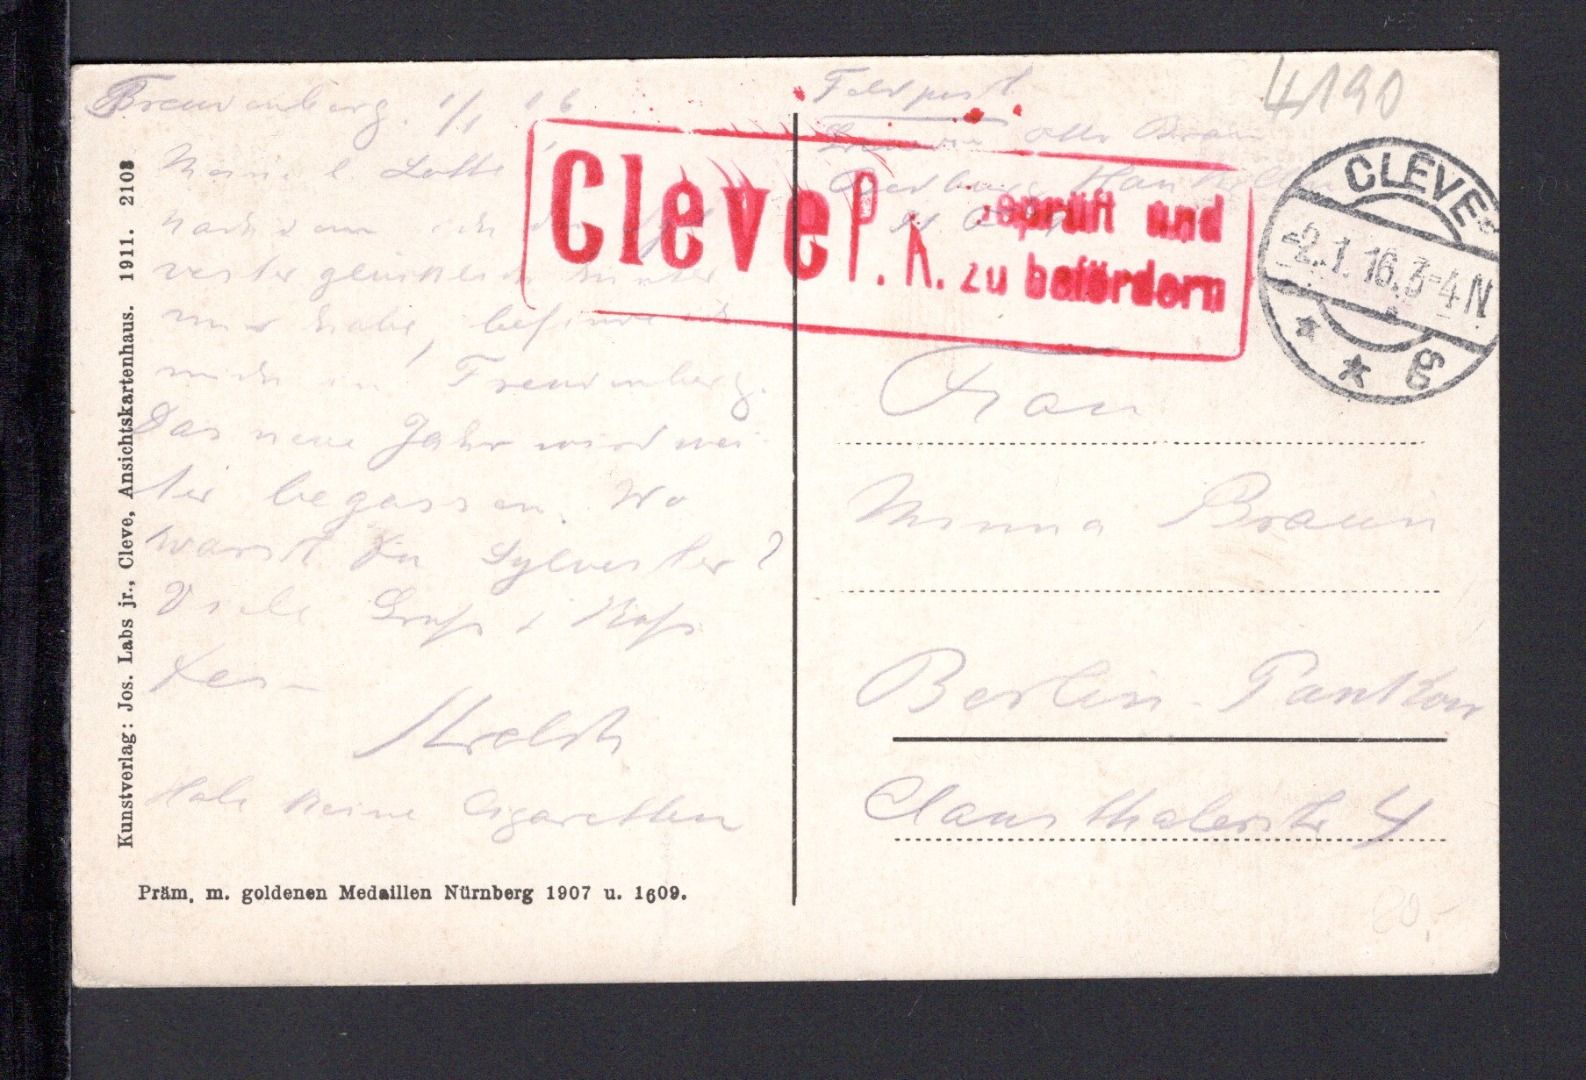 Freudenberg. 1/1 16
Meine l. Lotte!
nachdem ich
vester glücklich hinter
mir habe, befinde ich
mich in Freudenberg.
Das neue Jahr wird wei
ter begossen. Wo
warst Du Sylvester?
Viele Grüße & Küsse
Dein
Hab keine Cigaretten
Kunstverlag: Jos. Labs jr., Cleve, Ansichtskartenhaus. 1911. 2103
Präm. m. goldenen Medaillen Nürnberg 1907 u. 1609.
Feldpost
4190
Otto Braun
Cleve P. K. geprüft und
zu befördern
CLEVE
-2.1.16.3-4N
* * g
Frau
Minna Braun
Berlin-Pankow
Clausthalerstr 4
80,-